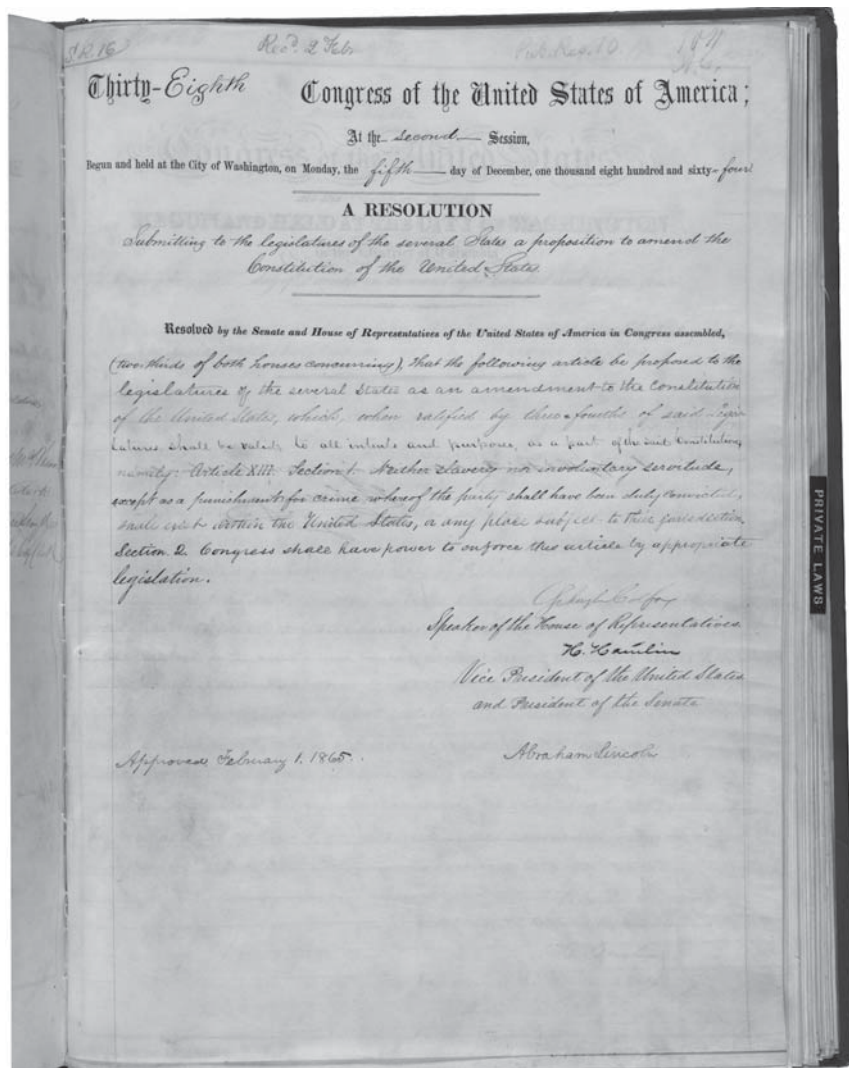 S.R. 16
Rec'd. 2 Feby
Thirty-Eighth Congress of the United States of America;
At the second Session,
Begun and held at the City of Washington, on Monday, the fifth day of December, one thousand eight hundred and sixty-four
A RESOLUTION
Submitting to the legislatures of the several States a proposition to amend the
Constitution of the United States.
Resolved by the Senate and House of Representatives of the United States of America in Congress assembled,
(two thirds of both houses concurring), That the following article be proposed to the
legislatures of the several States as an amendment to the Constitution
of the United States, which, when ratified by three-fourths of said Legis
latures shall be valid, to all intents and purposes, as a part of the said Constitution,
namely: Article XIII. Section 1. Neither slavery nor involuntary servitude,
except as a punishment for crime whereof the party shall have been duly convicted,
shall exist within the United States, or any place subject to their jurisdiction.
Section 2. Congress shall have power to enforce this article by appropriate
legislation.
Schuyler Colfax
Speaker of the House of Representatives.
H. Hamlin
Vice President of the United States
and President of the Senate
Approved, February 1. 1865.
Abraham Lincoln
PRIVATE LAWS